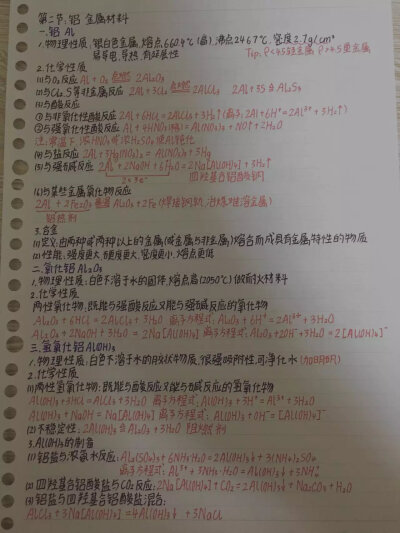 第二节:铝 金属材料
一.铝 Al
1.物理性质:银白色金属,熔点660.4℃(高),沸点2467℃,密度2.7g/cm³
易导电、导热,有延展性
Tip:ρ<4.5轻金属 ρ>4.5重金属
2.化学性质
(1)与O₂反应 Al+O₂ 2Al₂O₃
(2)与Cl₂、S等非金属反应 2Al+3Cl₂ 2AlCl₃ 2Al+3S Al₂S₃
(3)与酸反应
①与非氧化性酸反应 2Al+6HCl=2AlCl₃+3H₂↑(离子:2Al+6H⁺=2Al³⁺+3H₂↑)
②与强氧化性酸反应 Al+4HNO₃(稀)=Al(NO₃)₃+NO↑+2H₂O
注:常温下,浓HNO₃或浓H₂SO₄使Al钝化
(4)与盐反应 2Al+3Hg(NO₃)₂=Al(NO₃)₃+3Hg
(5)与强碱反应 2Al+2NaOH+6H₂O=2Na[Al(OH)₄]+3H₂↑
2×3e⁻ 四羟基合铝酸钠
(6)与某些金属氧化物反应
2Al+Fe₂O₃ 高温 Al₂O₃+2Fe(焊接钢轨,冶炼难溶金属)
铝热剂
3.合金
(1)定义:由两种或两种以上的金属(或金属与非金属)熔合而成具有金属特性的物质
(2)性能:强度更大,硬度更大,密度更小,熔点更低
二.氧化铝Al₂O₃
1.物理性质:白色不溶于水的固体,熔点高(2050℃)做耐火材料
2.化学性质
两性氧化物:既能与强酸反应又能与强碱反应的氧化物
Al₂O₃+6HCl=2AlCl₃+3H₂O 离子方程式:Al₂O₃+6H⁺=2Al³⁺+3H₂O
Al₂O₃+2NaOH+3H₂O=2Na[Al(OH)₄] 离子方程式:Al₂O₃+2OH⁻+3H₂O=2[Al(OH)₄]⁻
三.氢氧化铝Al(OH)₃
1.物理性质:白色不溶于水的胶状物质,很强吸附性,可净化水(加明矾)
2.化学性质
(1)两性氢氧化物:既能与酸反应又能与碱反应的氢氧化物
Al(OH)₃+3HCl=AlCl₃+3H₂O 离子方程式:Al(OH)₃+3H⁺=Al³⁺+3H₂O
Al(OH)₃+NaOH=Na[Al(OH)₄] 离子方程式:Al(OH)₃+OH⁻=[Al(OH)₄]⁻
(2)不稳定性:2Al(OH)₃≜Al₂O₃+3H₂O 阻燃剂
3.Al(OH)₃的制备
(1)铝盐与浓氨水反应:Al₂(SO₄)₃+6NH₃·H₂O=2Al(OH)₃↓+3(NH₄)₂SO₄
离子方程式:Al³⁺+3NH₃·H₂O=Al(OH)₃↓+3NH₄⁺
(2)四羟基合铝酸盐与CO₂反应:2Na[Al(OH)₄]+CO₂=2Al(OH)₃↓+Na₂CO₃+H₂O
(3)铝盐与四羟基铝酸盐混合:
AlCl₃+3Na[Al(OH)₄]=4Al(OH)₃↓+3NaCl